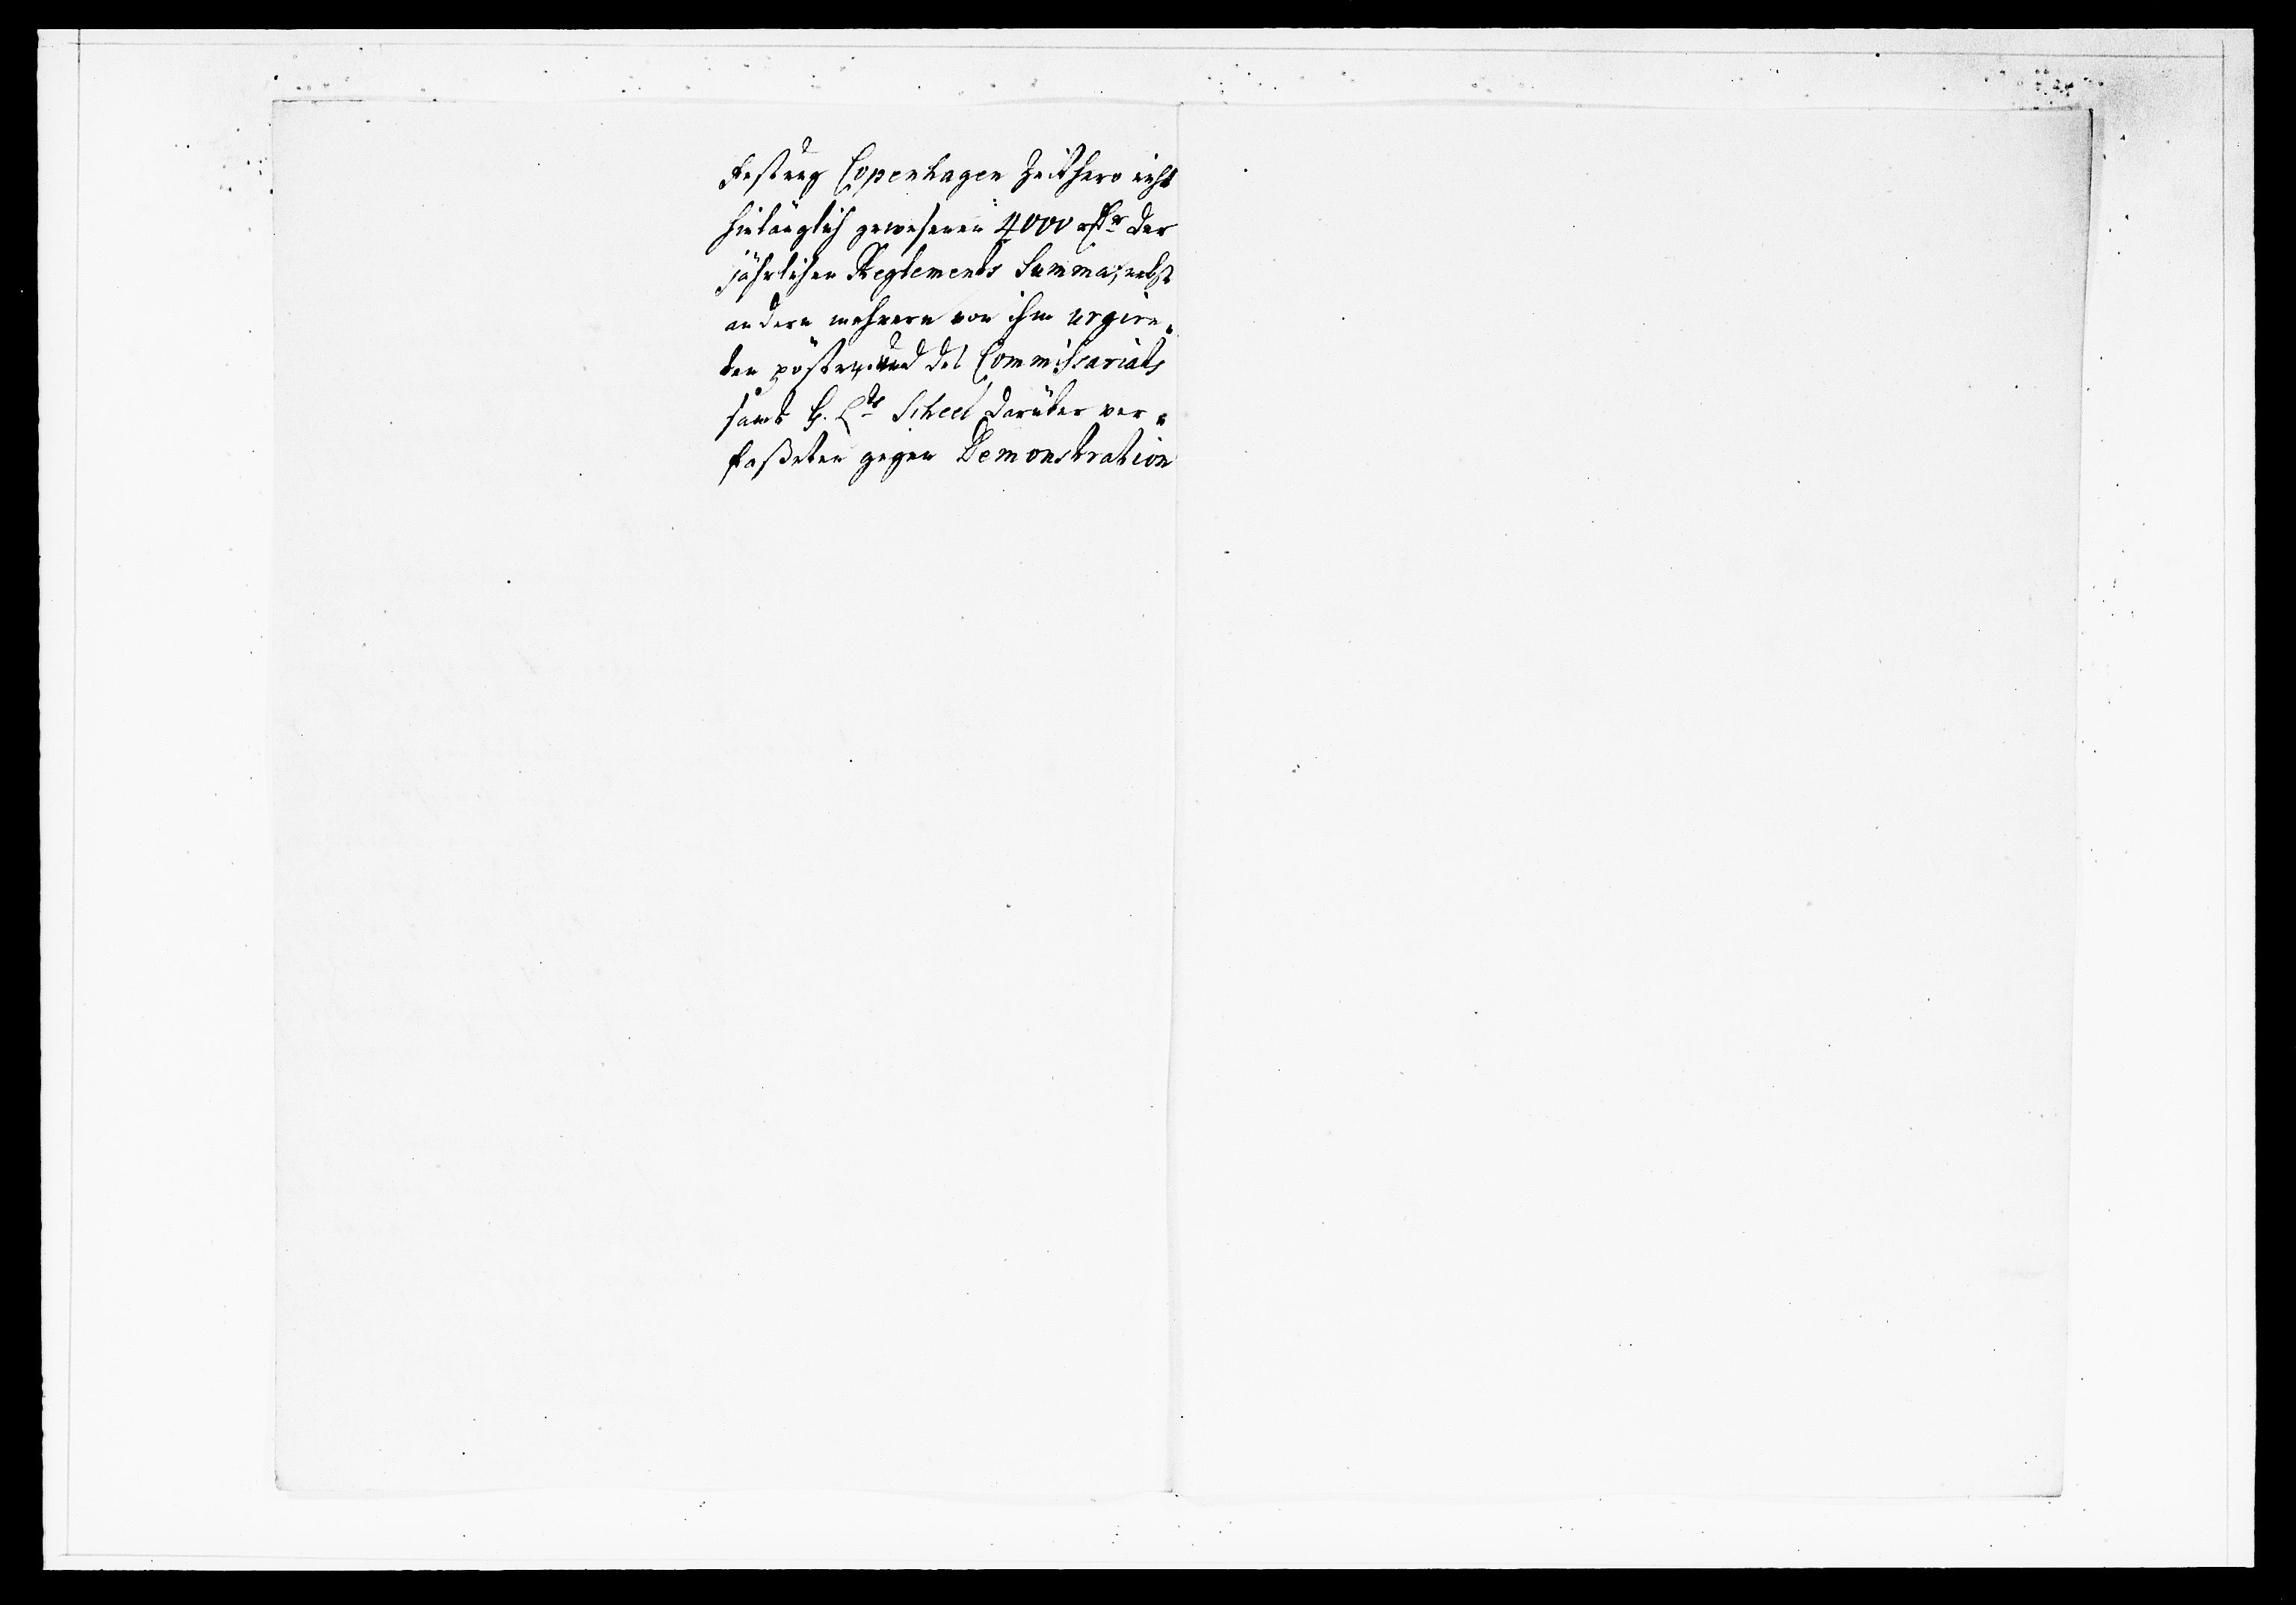 Festung Copenhagen Zeithero nicht
hinlänglich gewesenen 4000 rthlr der
jährlichen Reglements Summa, nebst
andern mehrern von ihm urgire„
ten pösten, und des Commissariats
samt G. Lts Scheel darüber ver„
faßeten gegen Demonstration